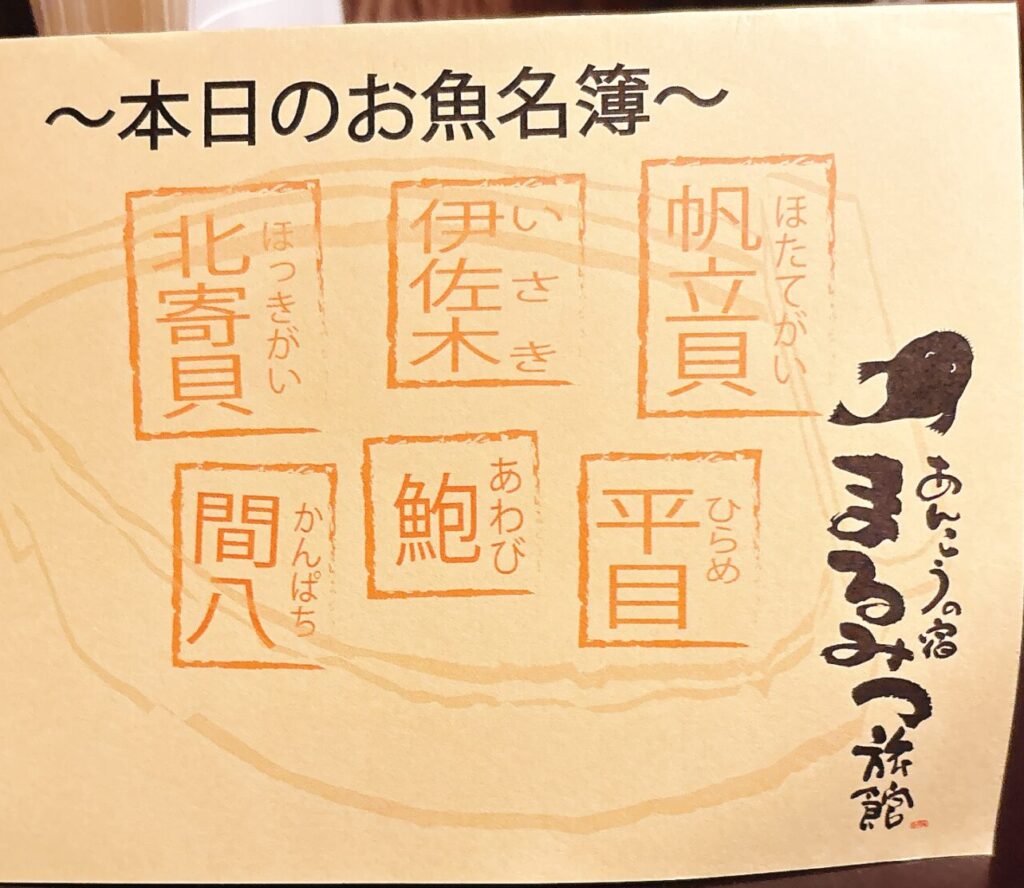 ～本日のお魚名簿～
帆立貝
ほたてがい
伊佐木
いさき
北寄貝
ほっきがい
平目
ひらめ
鮑
あわび
間八
かんぱち
あんこうの宿
まるみつ
旅館